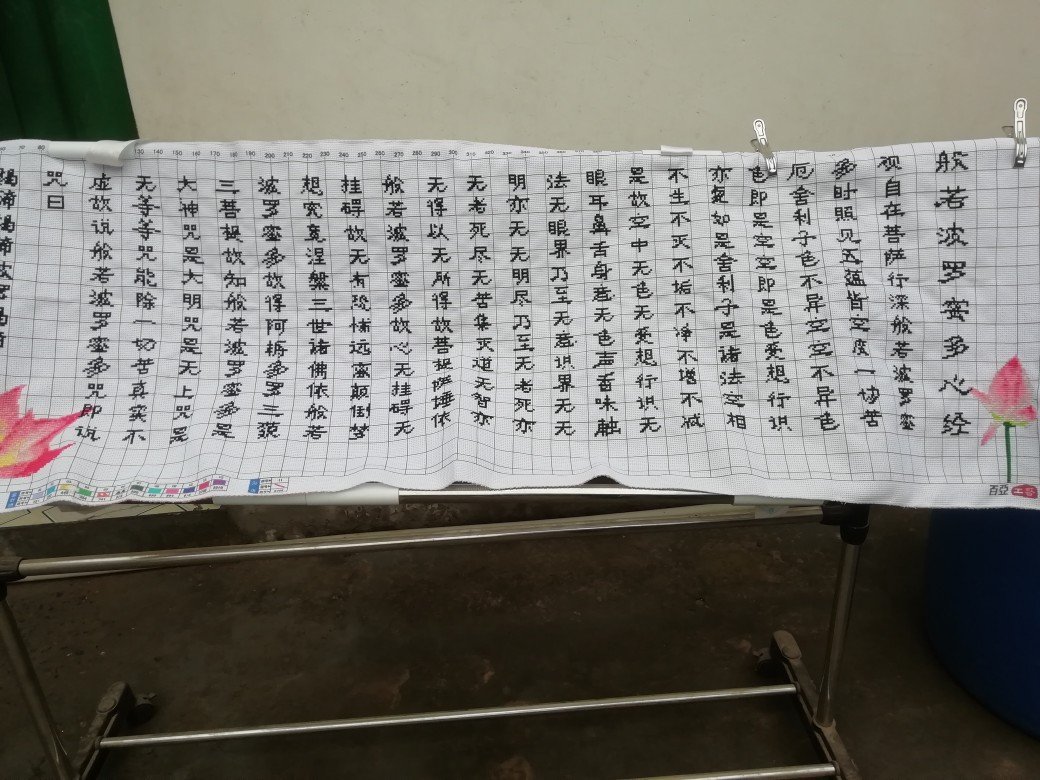 般若波罗蜜多心经
观自在菩萨行深般若波罗蜜
多时照见五蕴皆空度一切苦
厄舍利子色不异空空不异色
色即是空空即是色受想行识
亦复如是舍利子是诸法空相
不生不灭不垢不净不增不减
是故空中无色无受想行识无
眼耳鼻舌身意无色声香味触
法无眼界乃至无意识界无无
明亦无无明尽乃至无老死亦
无老死尽无苦集灭道无智亦
无得以无所得故菩提萨埵依
般若波罗蜜多故心无挂碍无
挂碍故无有恐怖远离颠倒梦
想究竟涅槃三世诸佛依般若
波罗蜜多故得阿耨多罗三藐
三菩提故知般若波罗蜜多是
大神咒是大明咒是无上咒是
无等等咒能除一切苦真实不
虚故说般若波罗蜜多咒即说
咒曰
揭谛揭谛波罗揭谛
百亞
130 140 150 160 170 180 190 200 210 220 230 240 250 260 270 280 290 300 310